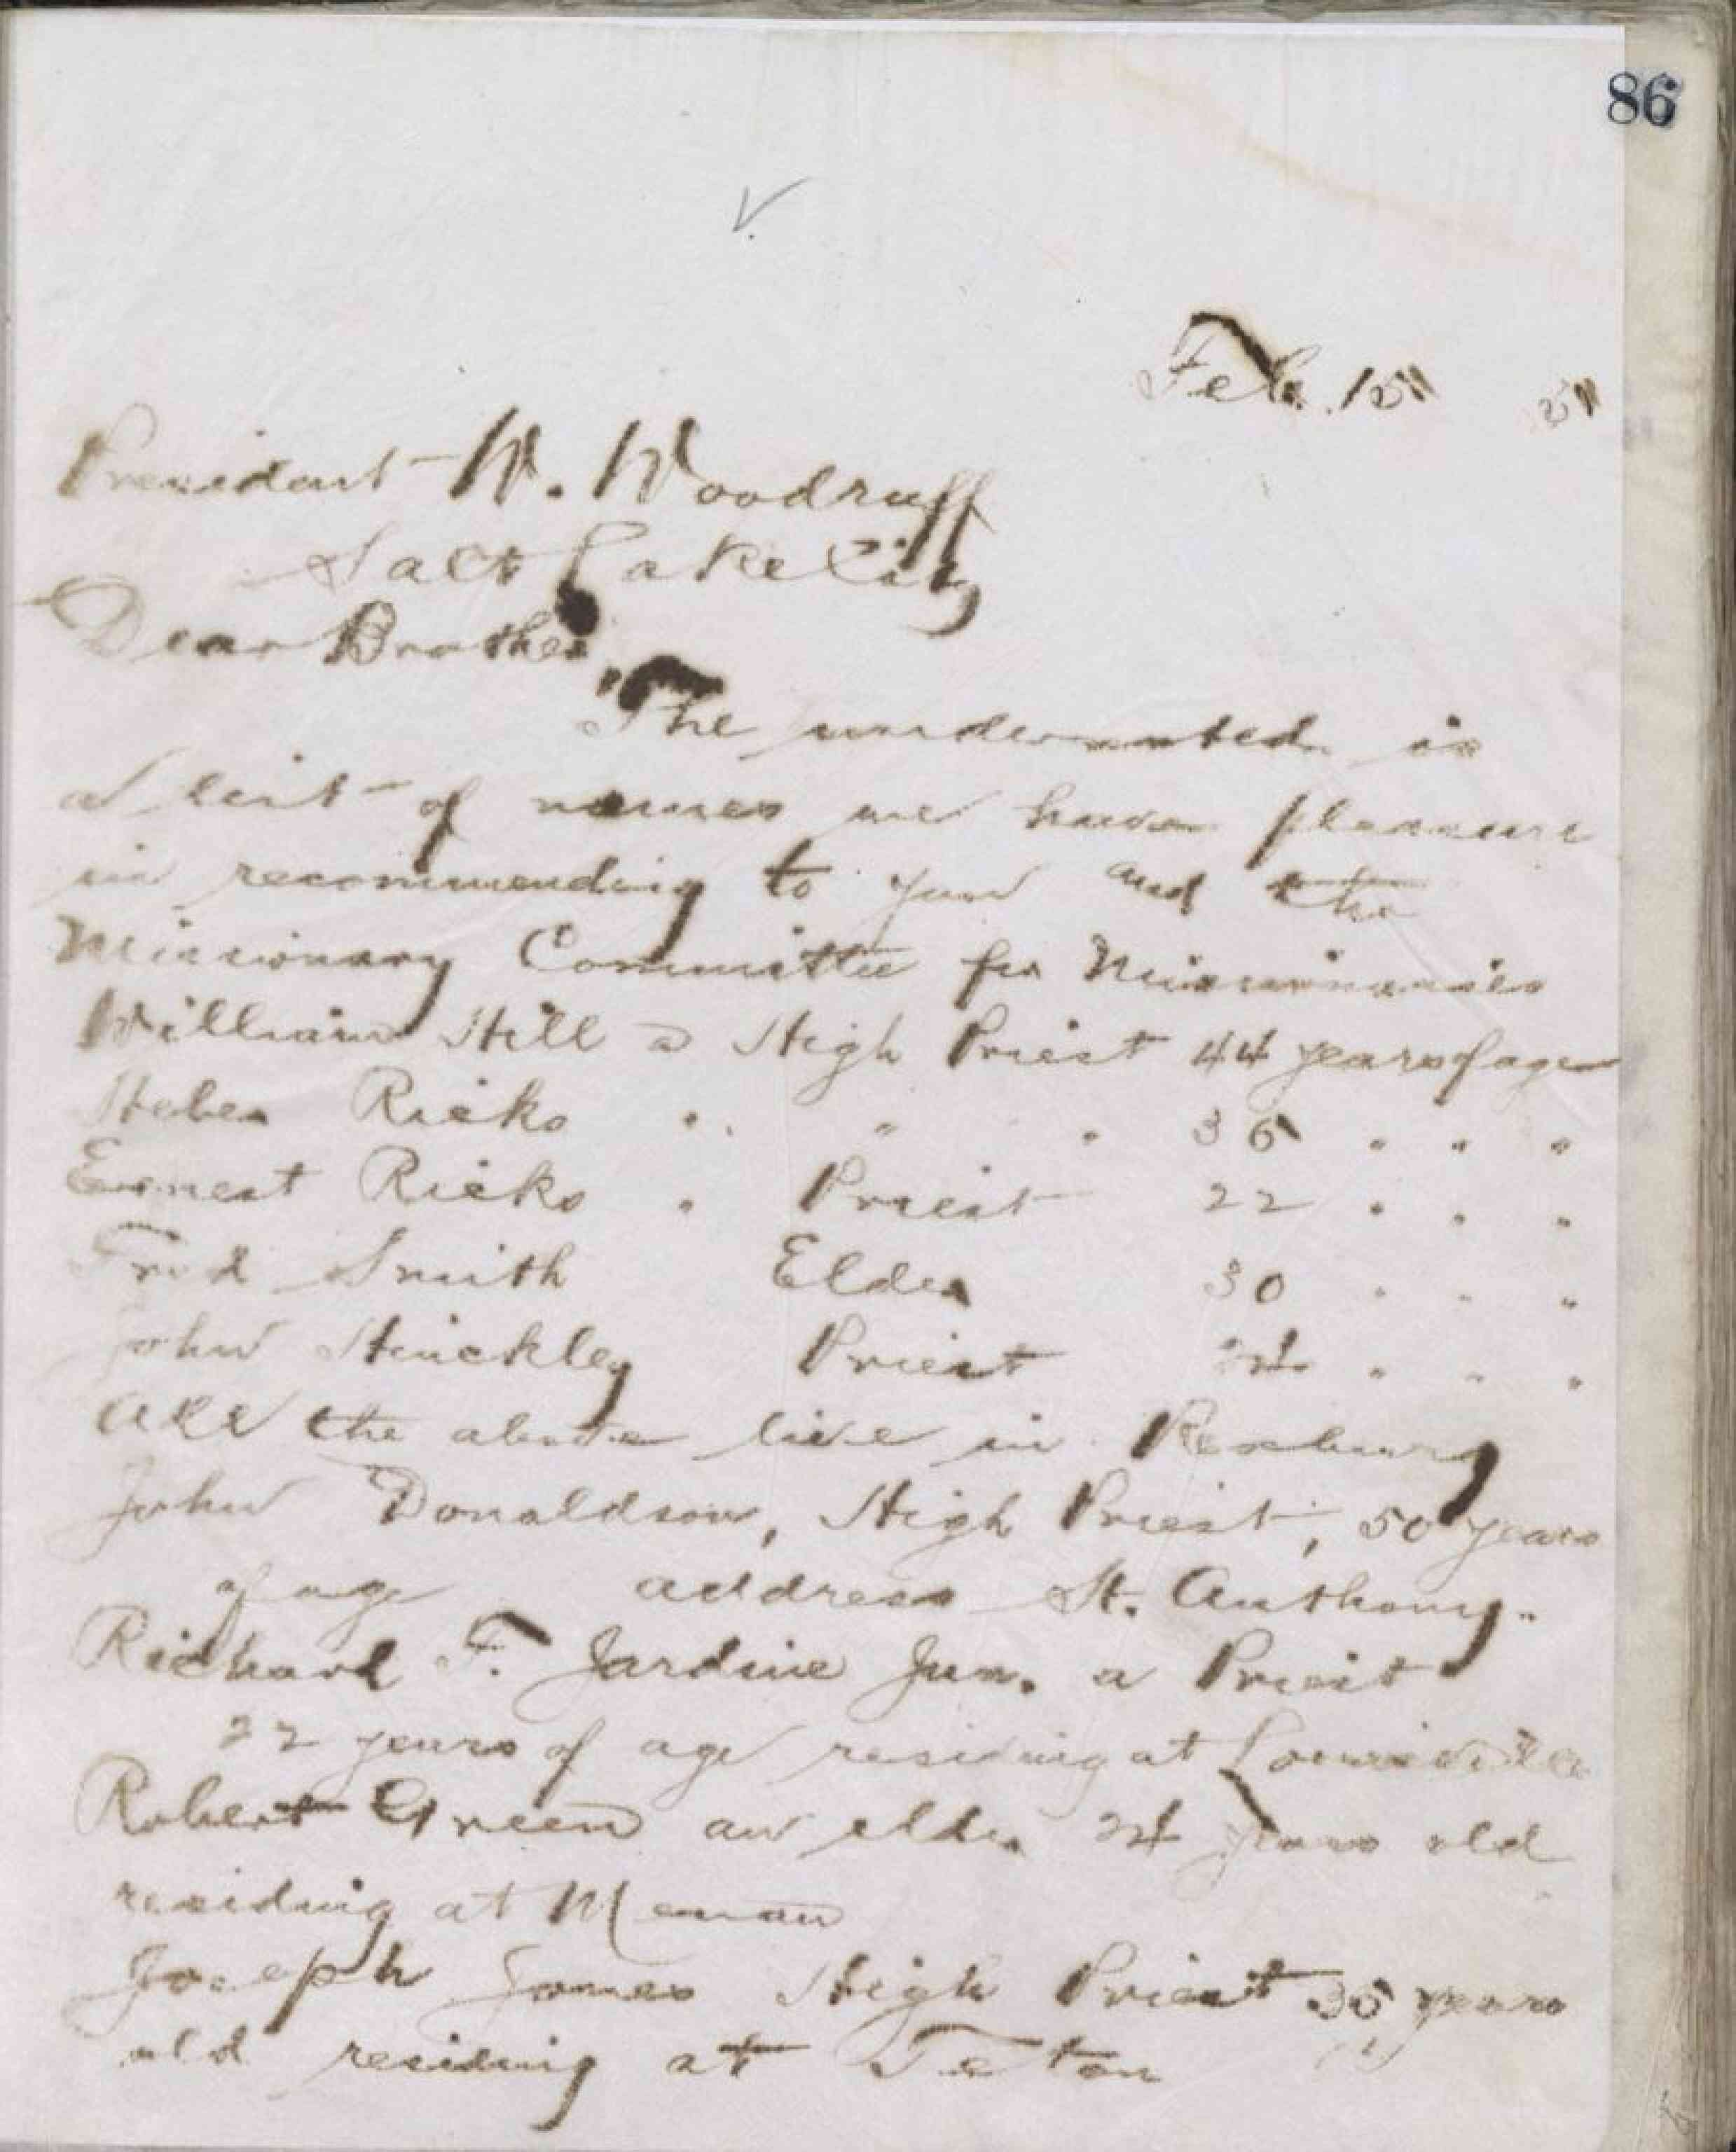 86
Feb. 15" 5"
President W. Woodruff
Salt Lake City
Dear Brother,
The undernoted is
a list of names we have pleasure
in recommending to you and the
Missionary Committee for Missionaries
William Hill a High Priest 44 years of age
Heber Ricks " " " 36 " " "
Ernest Ricks " Priest 22 " " "
Fred Smith Elder 30 " " "
John Hinckley Priest " " "
All the above live in Rexburg
John Donaldson, High Priest, 50 years
of age address St. Anthony.
Richard F. Jardine Jun. a Priest
22 years of age residing at Louisville
Robert Green an elder 24 years old
residing at Menan
Joseph Jones High Priest 35 years
old residing at Teton